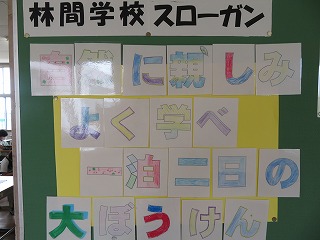 林間学校 スローガン
自然に親しみ
よく学べ
一泊二日の
大ぼうけん